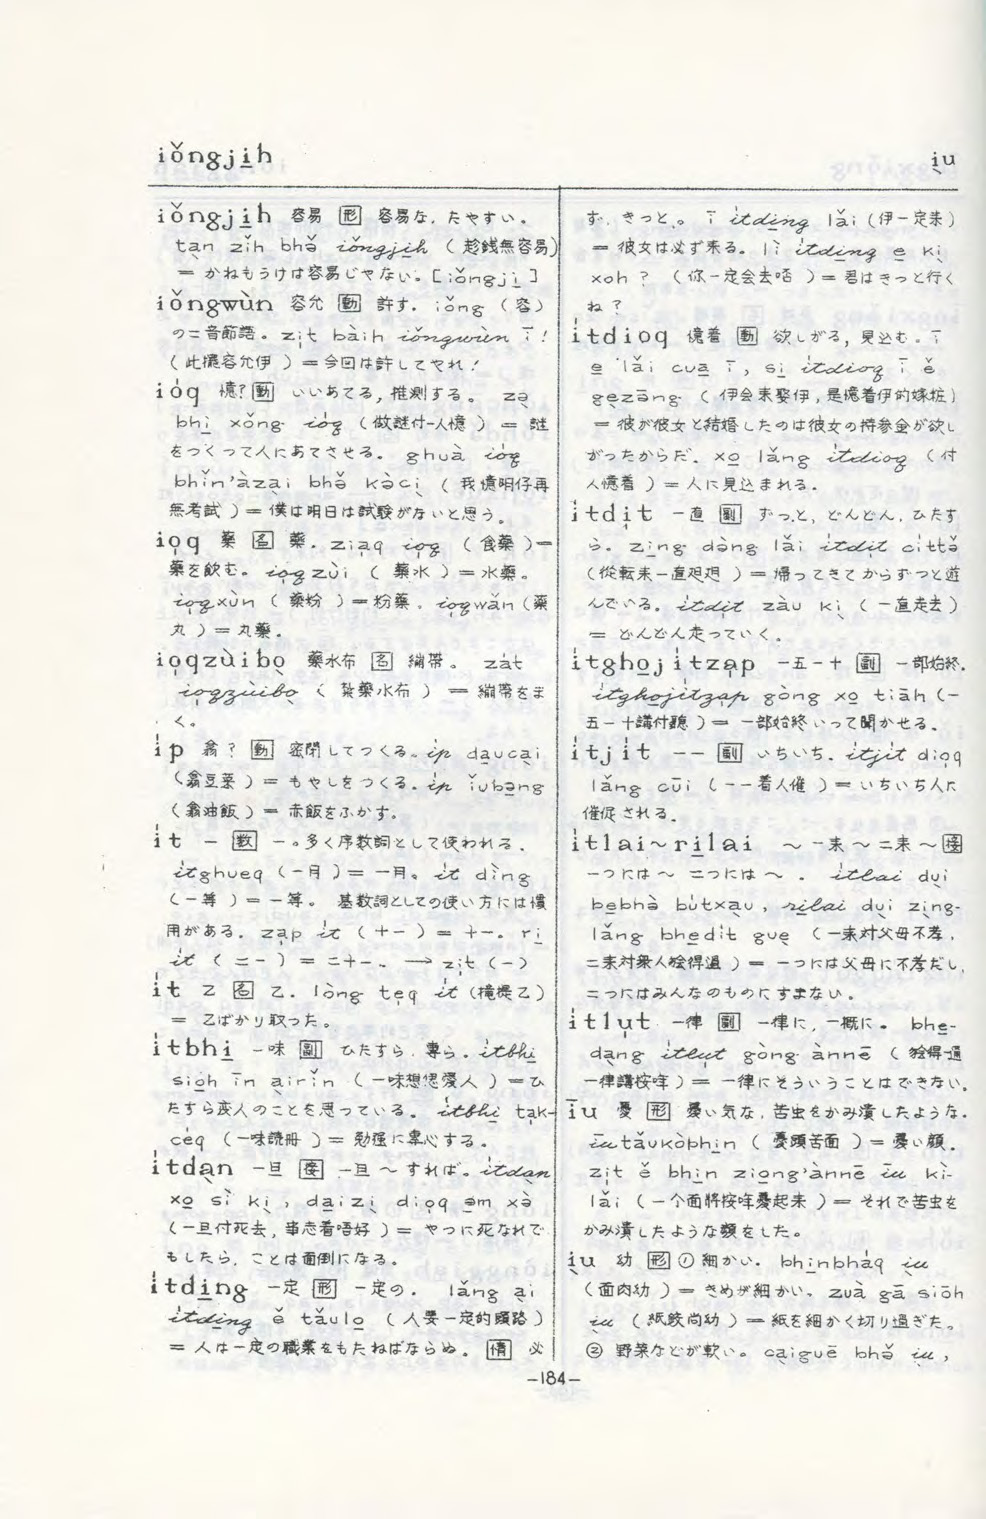 iǒngji̱h
i̖u
iǒngji̱h 容易 形 容易な,たやすい。
ta̖n zǐh bhə̌ iǒngji̱h (趁銭無容易)
= かねもうけは容易じゃない。[iǒngji̱]
iǒngwùn 容允 動 許す。iǒng (容)
の二音節語。zi̍t bàih iǒngwùn ī!
(此擺容允伊) = 今回は許してやれ!
ióq 憶? 動 いいあてる,推測する。 zə̖
bhi̱ xo̖ng ióq (做謎付人憶) = 謎
をつくって人にあてさせる。 ghuà ióq
bhǐn'àza̖i bhə̌ kə̀cì (我憶明仔再
無考試) = 僕は明日は試験がないと思う。
io̍q 薬 名 薬。zia̍q io̍q (食薬) =
薬を飲む。io̍qzùi (薬水) = 水薬。
io̍qxùn (薬粉) = 粉薬。io̍qwǎn (薬
丸) = 丸薬。
io̍qzùibo̖ 薬水布 名 繃帯。 zát
io̍qzùibo̖ (紮薬水布) = 繃帯をま
く。
íp 翕? 動 密閉してつくる。íp da̱uca̖i
(翕豆菜) = もやしをつくる。íp ǐuba̱ng
(翕油飯) = 赤飯をふかす。
ít 一 数 一。多く序数詞として使われる。
ítghueq (一月) = 一月。ít dìng
(一等) = 一等。 基数詞としての使い方には慣
用がある。za̍p ít (十一) = 十一。ri̱
ít (二一) = 二十一。 → zi̍t (一)
ít 乙 名 乙。lòng te̍q ít (攏提乙)
= 乙ばかり取った。
ítbhi̱ 一味 副 ひたすら,専ら。ítbhi̱
sio̱h īn airǐn (一味想𪜶愛人) = ひ
たすら恋人のことを思っている。 ítbhi̱ ta̍k-
céq (一味読冊) = 勉強に専心する。
ítda̖n 一旦 接 一旦〜すれば。ítda̖n
xo̱ sì ki̖, da̱izi̖ dio̍q ə̱m xə̀
(一旦付死去,事志着唔好) = やつに死なれで
もしたら,ことは面倒になる。
ítdi̱ng 一定 形 一定の。 lǎng a̖i
ítdi̱ng ě tǎulo̱ (人要一定的頭路)
= 人は一定の職業をもたねばならぬ。 情 必
ず,きっと。ī ítdi̱ng lǎi (伊一定来)
= 彼女は必ず来る。lì ítdi̱ng e̱ ki̖
xoh? (你一定会去唔) = 君はきっと行く
ね?
ítdio̍q 憶着 動 欲しがる,見込む。ī
e̱ lǎi cua̱ ī, si̱ ítdio̍q ī ě
ge̖zāng (伊会来娶伊,是憶着伊的嫁粧)
= 彼が彼女と結婚したのは彼女の持参金が欲し
がったからだ。xo̱ lǎng ítdio̍q (付
人憶着) = 人に見込まれる。
ítdi̍t 一直 副 ずっと,どんどん,ひたす
ら。zi̱ng də̀ng lǎi ítdi̍t cìttə̌
(從転来一直𨑨迌) = 帰ってきてからずっと遊
んでいる。ítdi̍t zàu ki̖ (一直走去)
= どんどん走っていく。
ítgho̱jítza̍p 一五一十 副 一部始終。
ítgho̱jítza̍p gòng xo̱ tiāh (一
五一十講付聴) = 一部始終いって聞かせる。
ítjít 一一 副 いちいち。ítjít dio̍q
lǎng cūi (一一着人催) = いちいち人に
催促される。
ítlai〜ri̱lai 〜一来〜二来〜 接
一つには〜 二つには〜。 ítlai du̖i
be̱bhə̀ bútxa̖u, ri̱lai du̖i zi̖ng-
lǎng bhe̱dít gue̖ (一来対父母不孝,
二来対衆人𣍐得過) = 一つには父母に不孝だし,
二つにはみんなのものにすまない。
ítlu̍t 一律 副 一律に,一概に。 bhe̱-
da̖ng ítlu̍t gòng ànnē (𣍐得通
一律講按哖) = 一律にそういうことはできない。
īu 憂 形 憂い気な,苦虫をかみ潰したような。
īutǎukòbhi̱n (憂頭苦面) = 憂い顔。
zi̍t ě bhi̱n ziong'ànnē īu kì-
lǎi (一个面将按哖憂起来) = それで苦虫を
かみ潰したような顔をした。
i̖u 幼 形 ①細かい。bhi̱nbháq i̖u
(面肉幼) = きめが細かい。zuà gā siōh
i̖u (紙鉸尚幼) = 紙を細かく切り過ぎた。
② 野菜などが軟い。ca̖iguē bhə̌ i̖u,
-184-